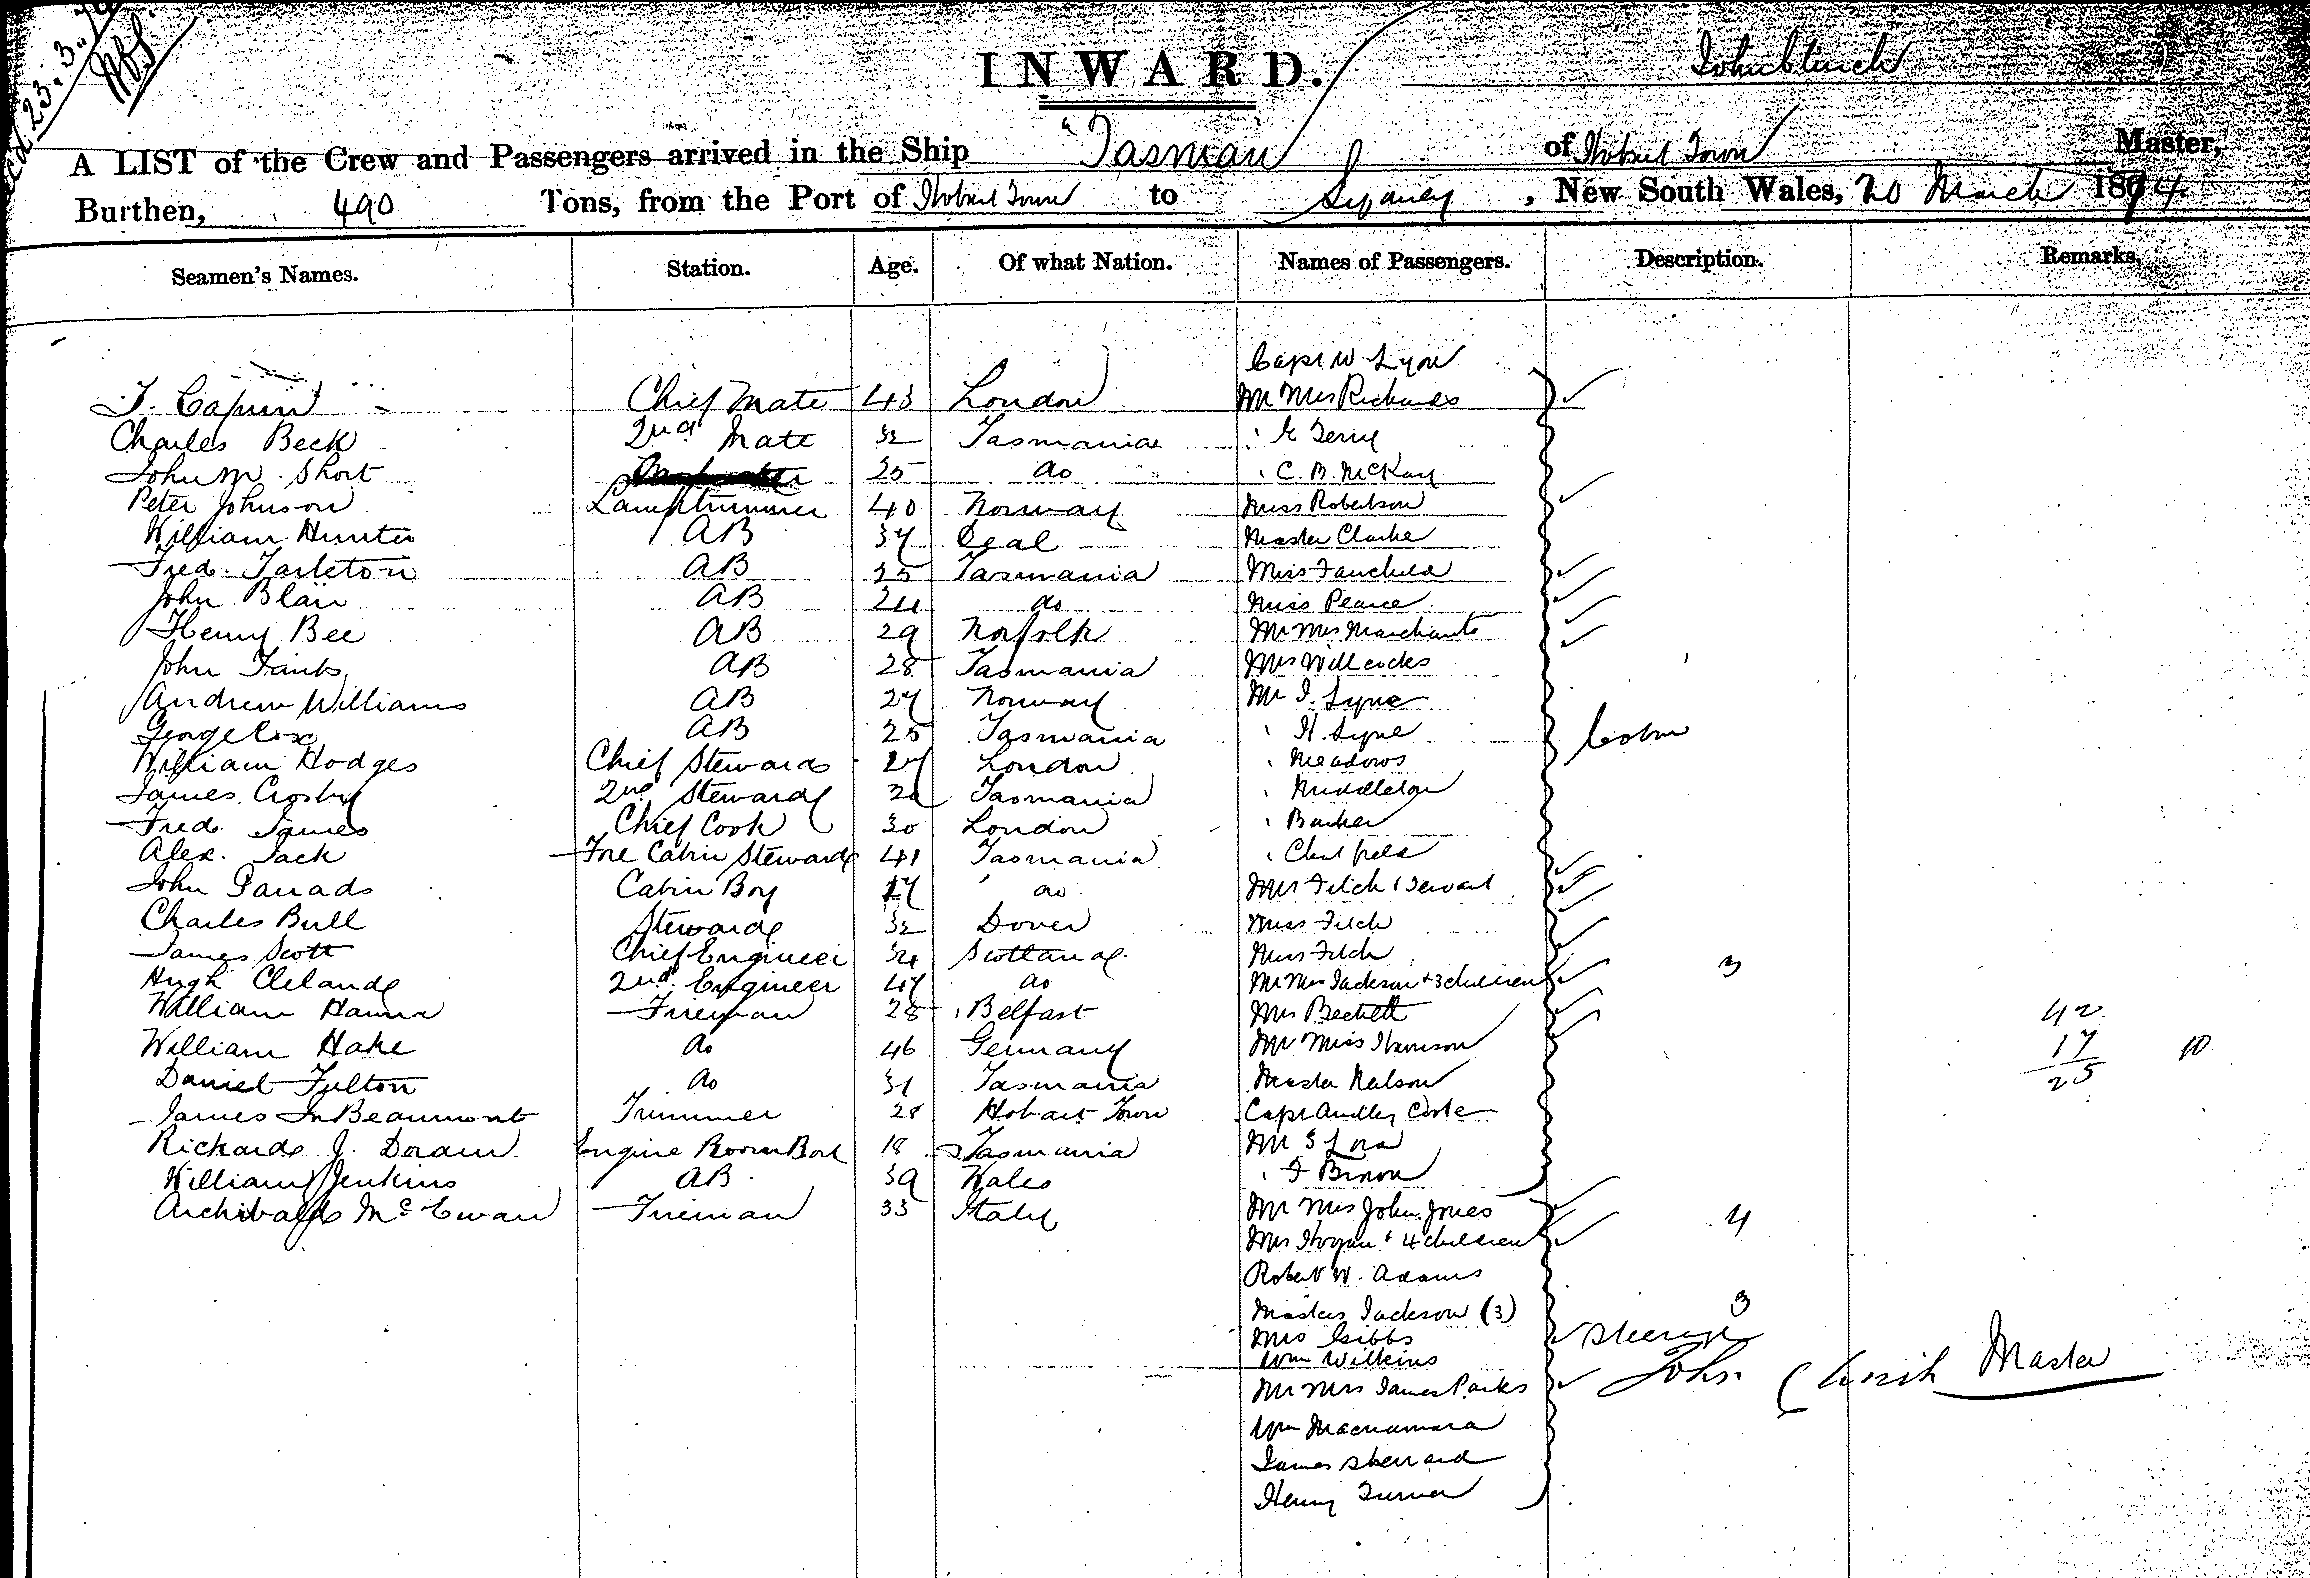 23.3.74
INWARD.
A LIST of the Crew and Passengers arrived in the Ship "Tasman" of Hobart Town Master,
Burthen, 490 Tons, from the Port of Hobart Town to Sydney, New South Wales, 20 March 1874
Seamen's Names. Station. Age. Of what Nation. Names of Passengers. Description. Remarks.
Capt W. Lyon
Chief Mate 43 London Mr Mrs Richards
Charles Beck 2nd Mate 32 Tasmania
John M. Short 25 do " C. B. McKay
Peter Johnson Lamptrimmer 40 Norway Miss Robertson
William Hunter AB 37 Master Clarke
Fred. Tarleton AB 25 Tasmania Miss Fairchild
John Blair AB 24 do Miss Pearce
Henry Bee AB 29 Norfolk Mr Mrs Marchant
John AB 28 Tasmania Mrs Willcocks
Andrew Williams AB 27 Norway Mr I. Lyne
George Cox AB 25 Tasmania " H. Lyne
William Hodges Chief Steward 27 London " Meadows
James Crosby 2nd Steward Tasmania " Middleton
Fred. James Chief Cook 30 London " Barker
Alex. Jack Fore Cabin Steward 41 Tasmania
John Cabin Boy 17 do Mrs Fitch & Servant
Charles Bull Steward 32 Dover Miss Fitch
James Scott Chief Engineer 34 Scotland Miss Fitch
Hugh Cleland 2nd Engineer 47 do Mr Mrs Jackson + 3 children 3
William Fireman 28 Belfast Mrs Beckett 42
William Hake do 46 Germany Mr Miss Harrison 17 10
Daniel Fulton do 31 Tasmania Master Nelson 25
James Beaumont Trimmer 28 Hobart Town Capt Audley Coote
Richard J. Doran Engine Room Boy 18 Tasmania Mr
William Jenkins AB 39 Wales
Archibald McEwan Fireman 33 Italy Mr Mrs John Jones
Mrs Hogan & 4 children 4
Robert W. Adams
Masters Jackson (3) 3
Mrs Gibbs Steerage
Wm Wilkins
Mr Mrs James Parks John Clinch Master
Wm Macnamara
James Sherrard
Henry Turner